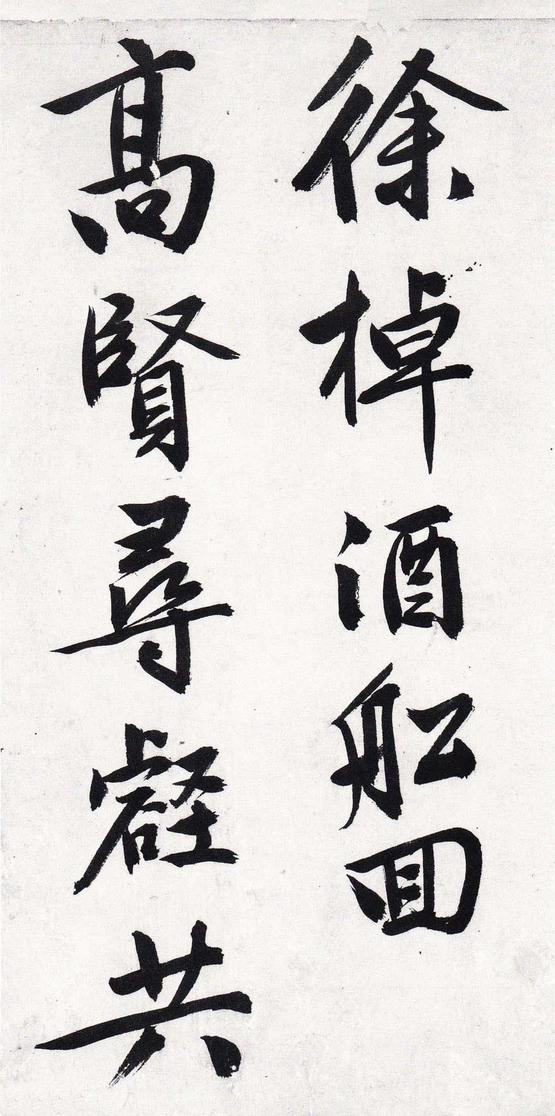 徐棹酒舩回
高賢尋壑共